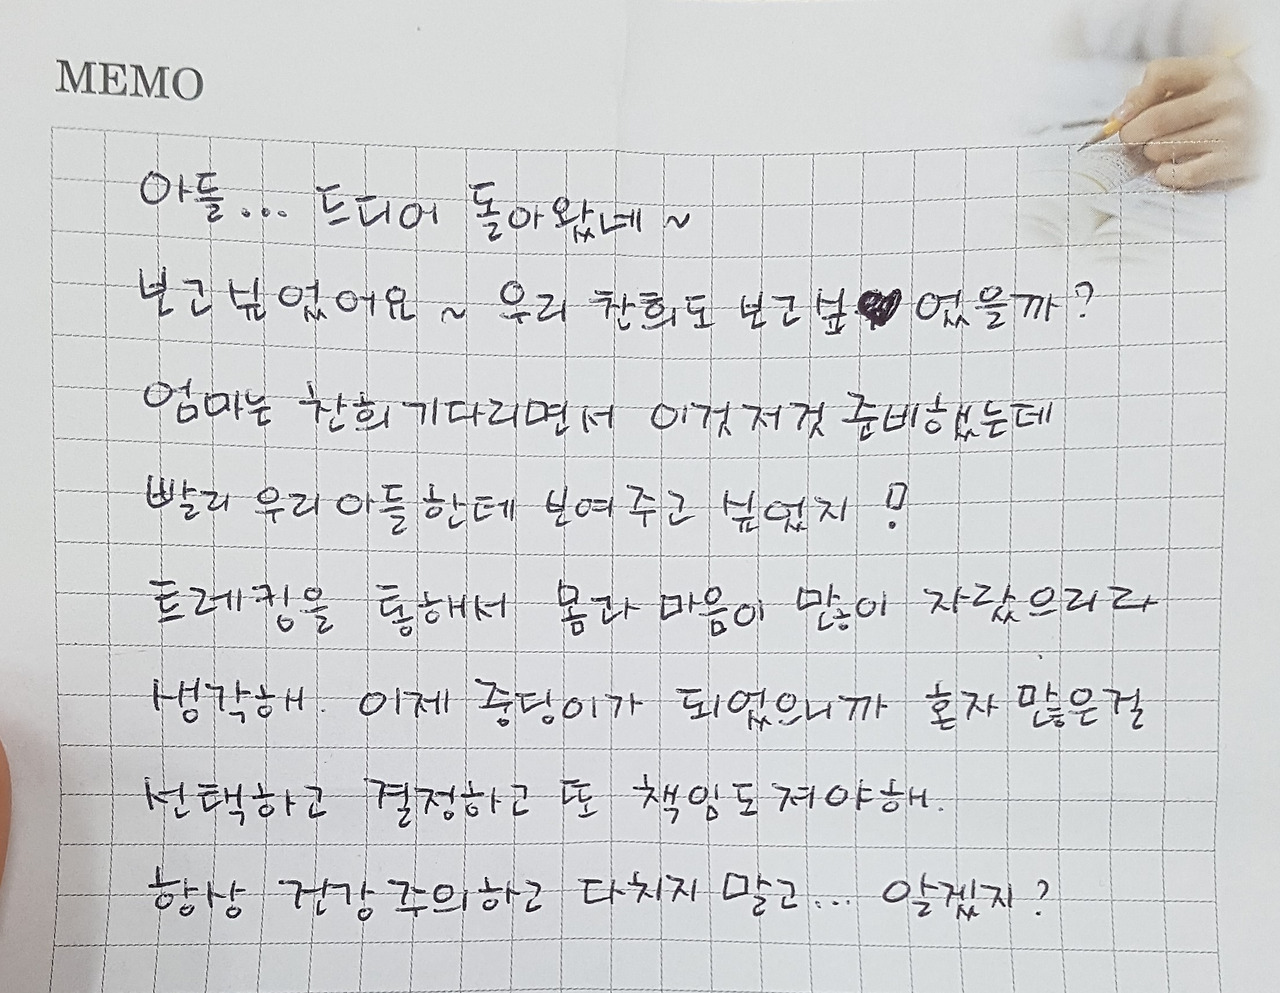 MEMO
아들... 드디어 돌아왔네~
보고싶었어요~ 우리 찬희도 보고싶었을까?
엄마는 찬희 기다리면서 이것저것 준비했는데
빨리 우리아들한테 보여주고 싶었지!
트레킹을 통해서 몸과 마음이 많이 자랐으리라
생각해. 이제 중딩이가 되었으니까 혼자 많은걸
선택하고 결정하고 또 책임도져야해.
항상 건강주의하고 다치지 말고... 알겠지?